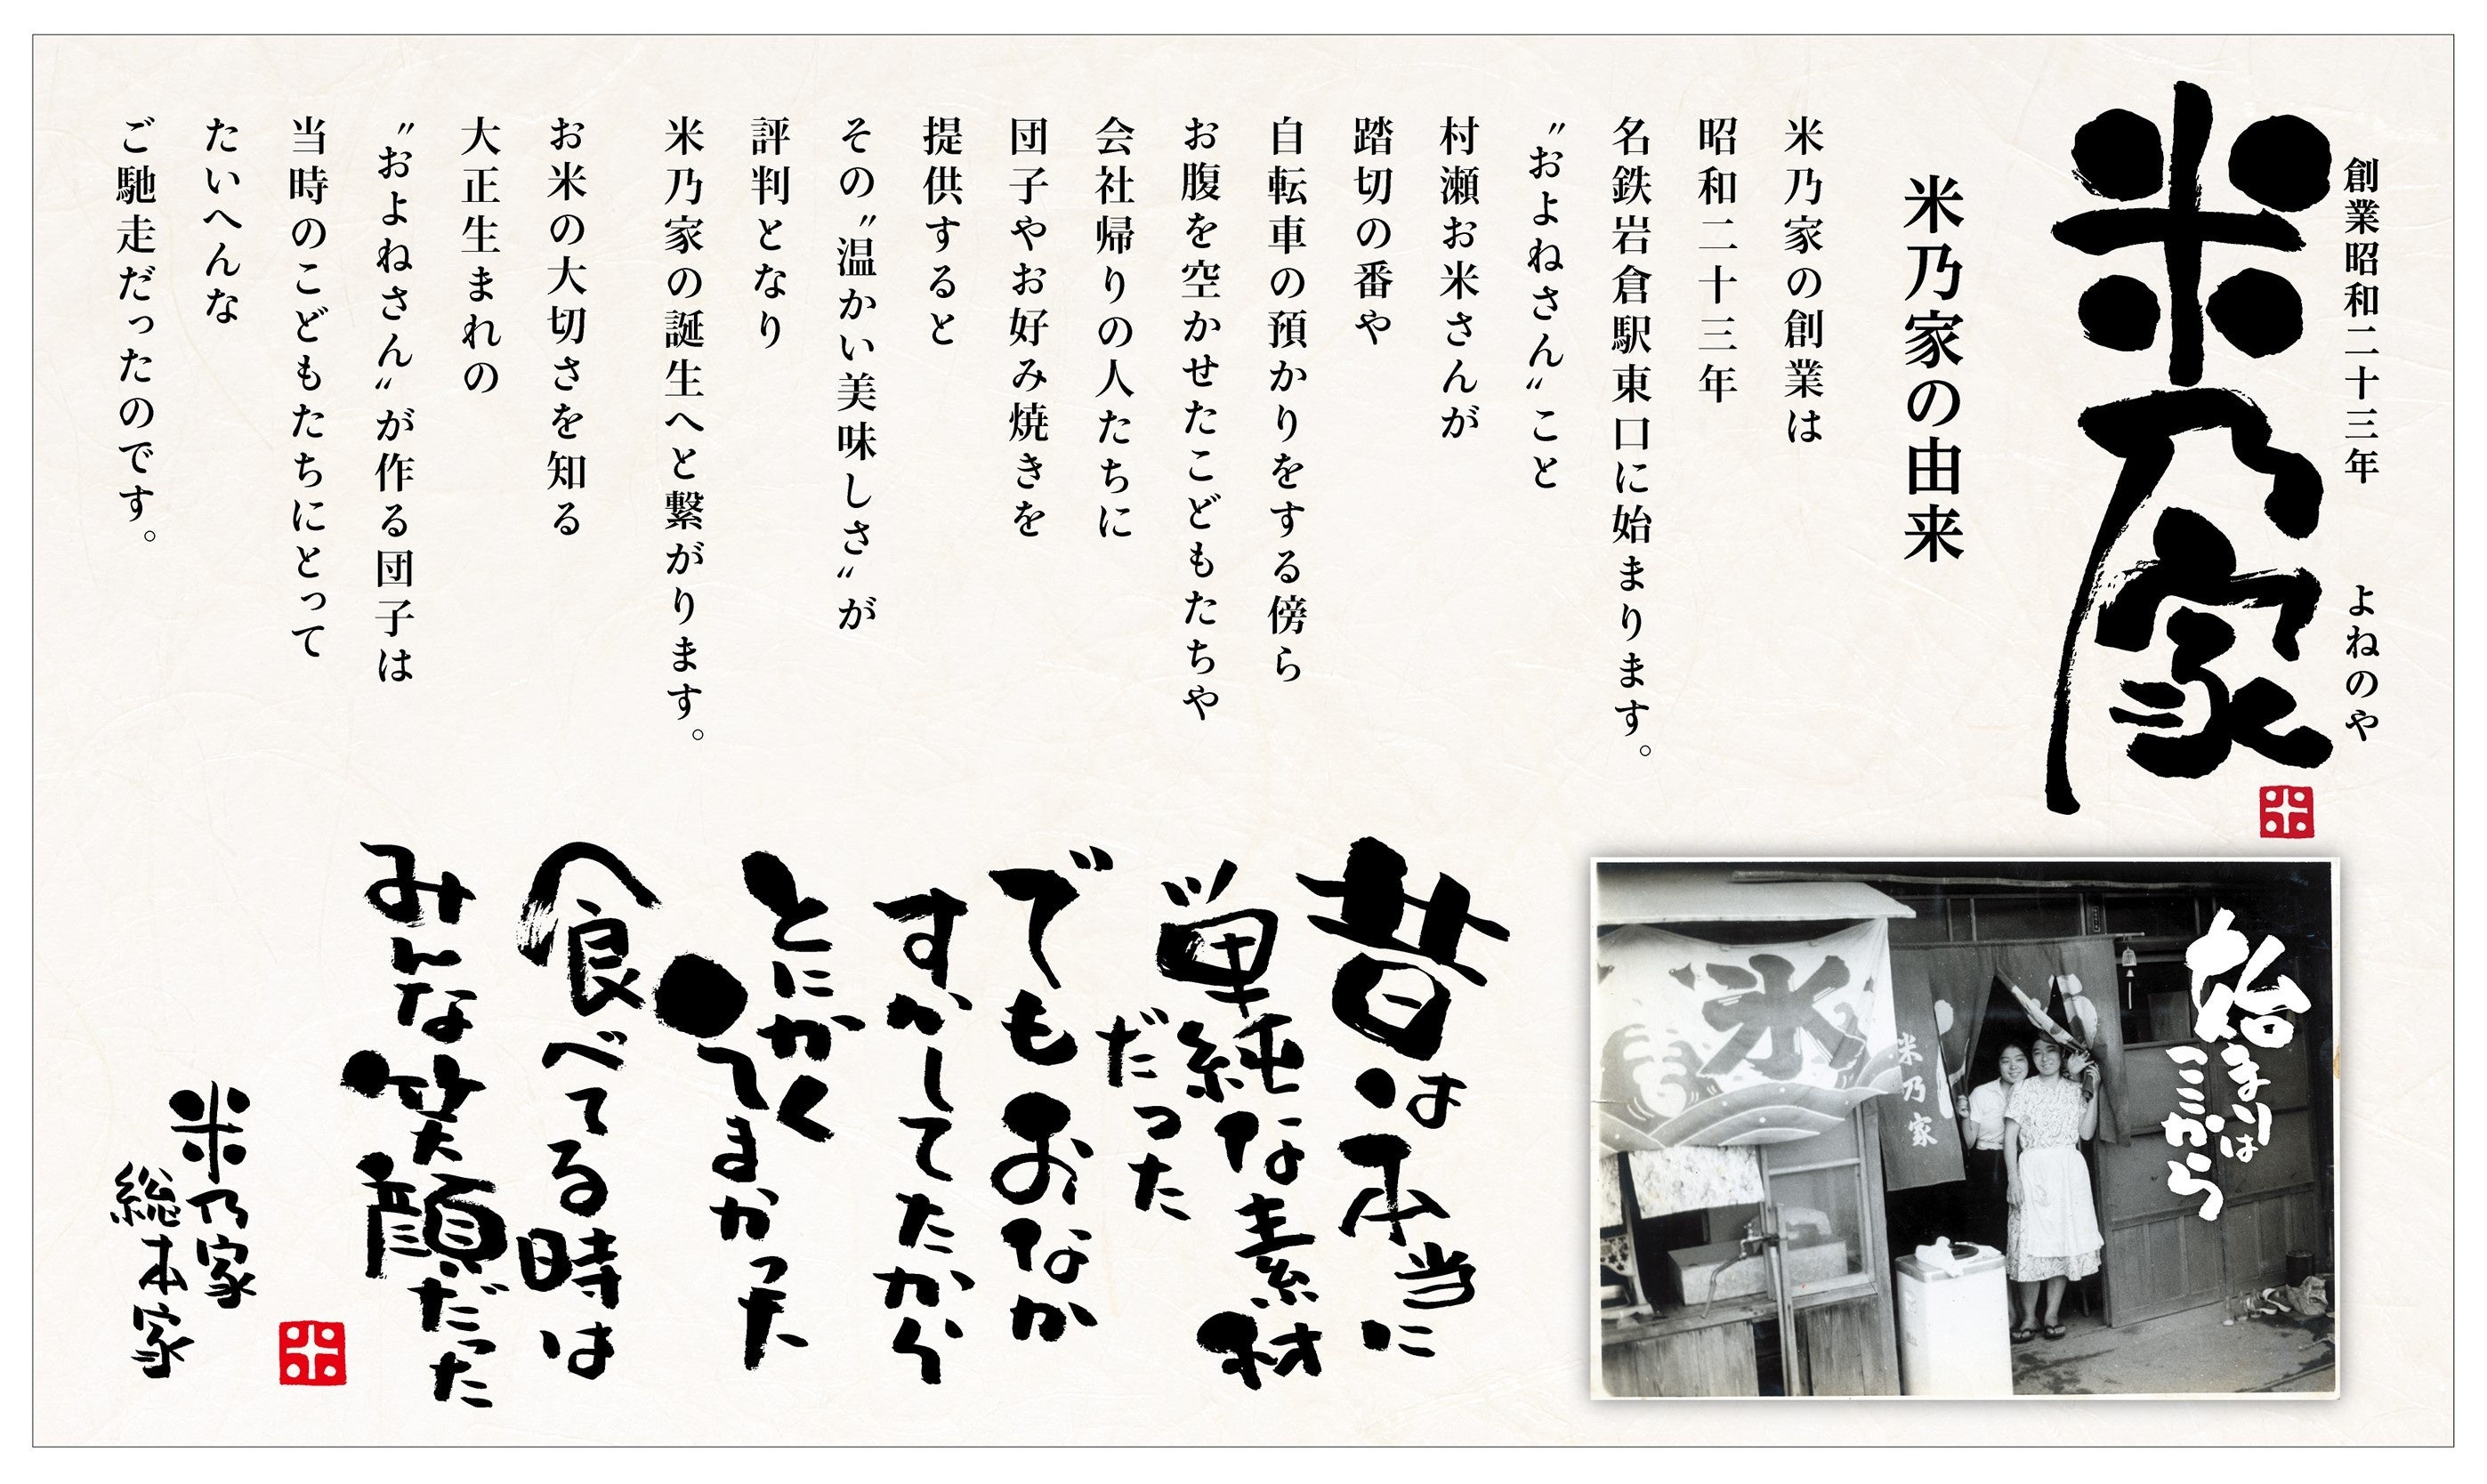 創業昭和二十三年　よねのや
米乃家
米乃家の由来
米乃家の創業は
昭和二十三年
名鉄岩倉駅東口に始まります。
〝およねさん〟こと
村瀬お米さんが
踏切の番や
自転車の預かりをする傍ら
お腹を空かせたこどもたちや
会社帰りの人たちに
団子やお好み焼きを
提供すると
その〝温かい美味しさ〟が
評判となり
米乃家の誕生へと繋がります。
お米の大切さを知る
大正生まれの
〝およねさん〟が作る団子は
当時のこどもたちにとって
たいへんな
ご馳走だったのです。
始まりは
ここから
氷
米乃家
昔は本当に
単純な素材
だった
でもおなか
すかしてたから
とにかく
うまかった
食べてる時は
みんな笑顔だった
米乃家
総本家